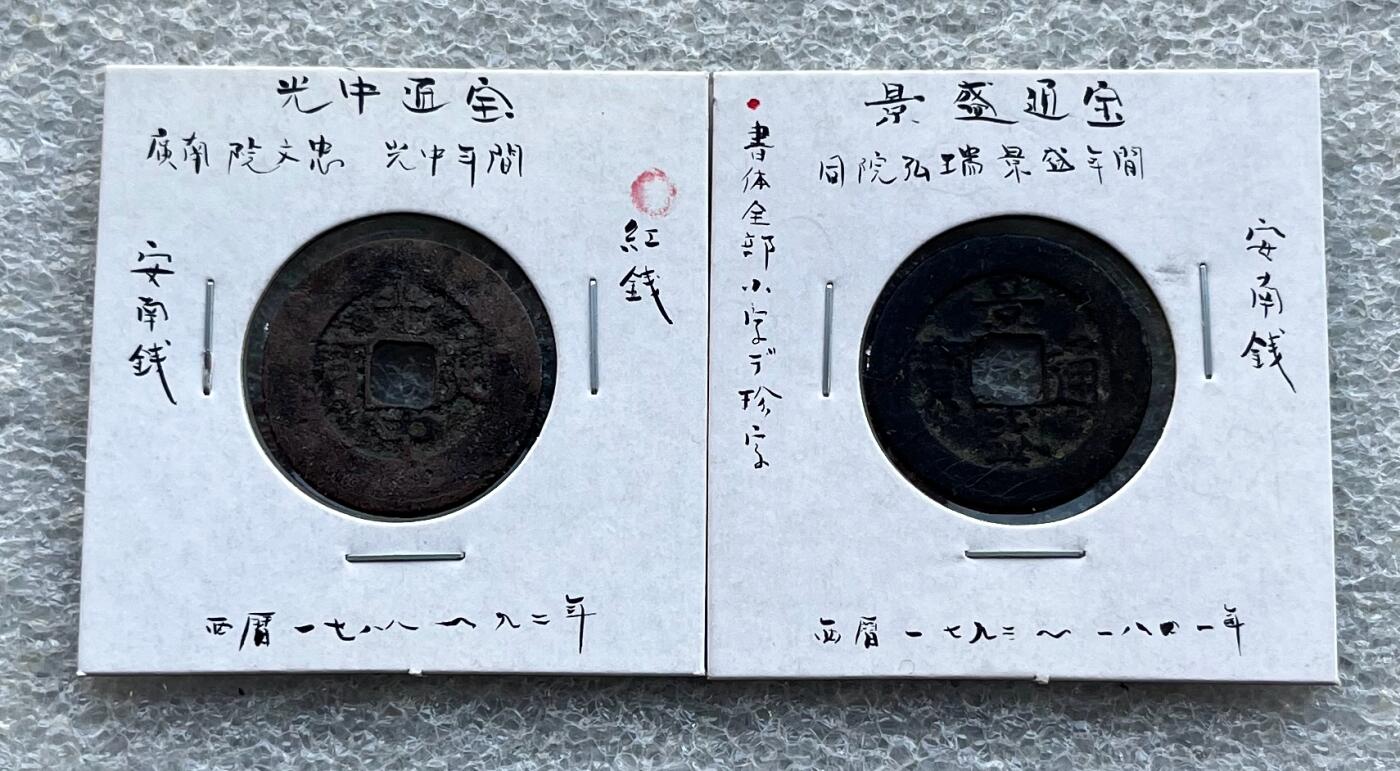 光中通宝
廣南院文忠 光中年間
紅銭
安南銭
光中
西暦一七八八〜九二年
景盛通宝
同院弘瑞景盛年間
・書体全部小字デ珍字
安南銭
景通
西暦一七九三〜一八四一年